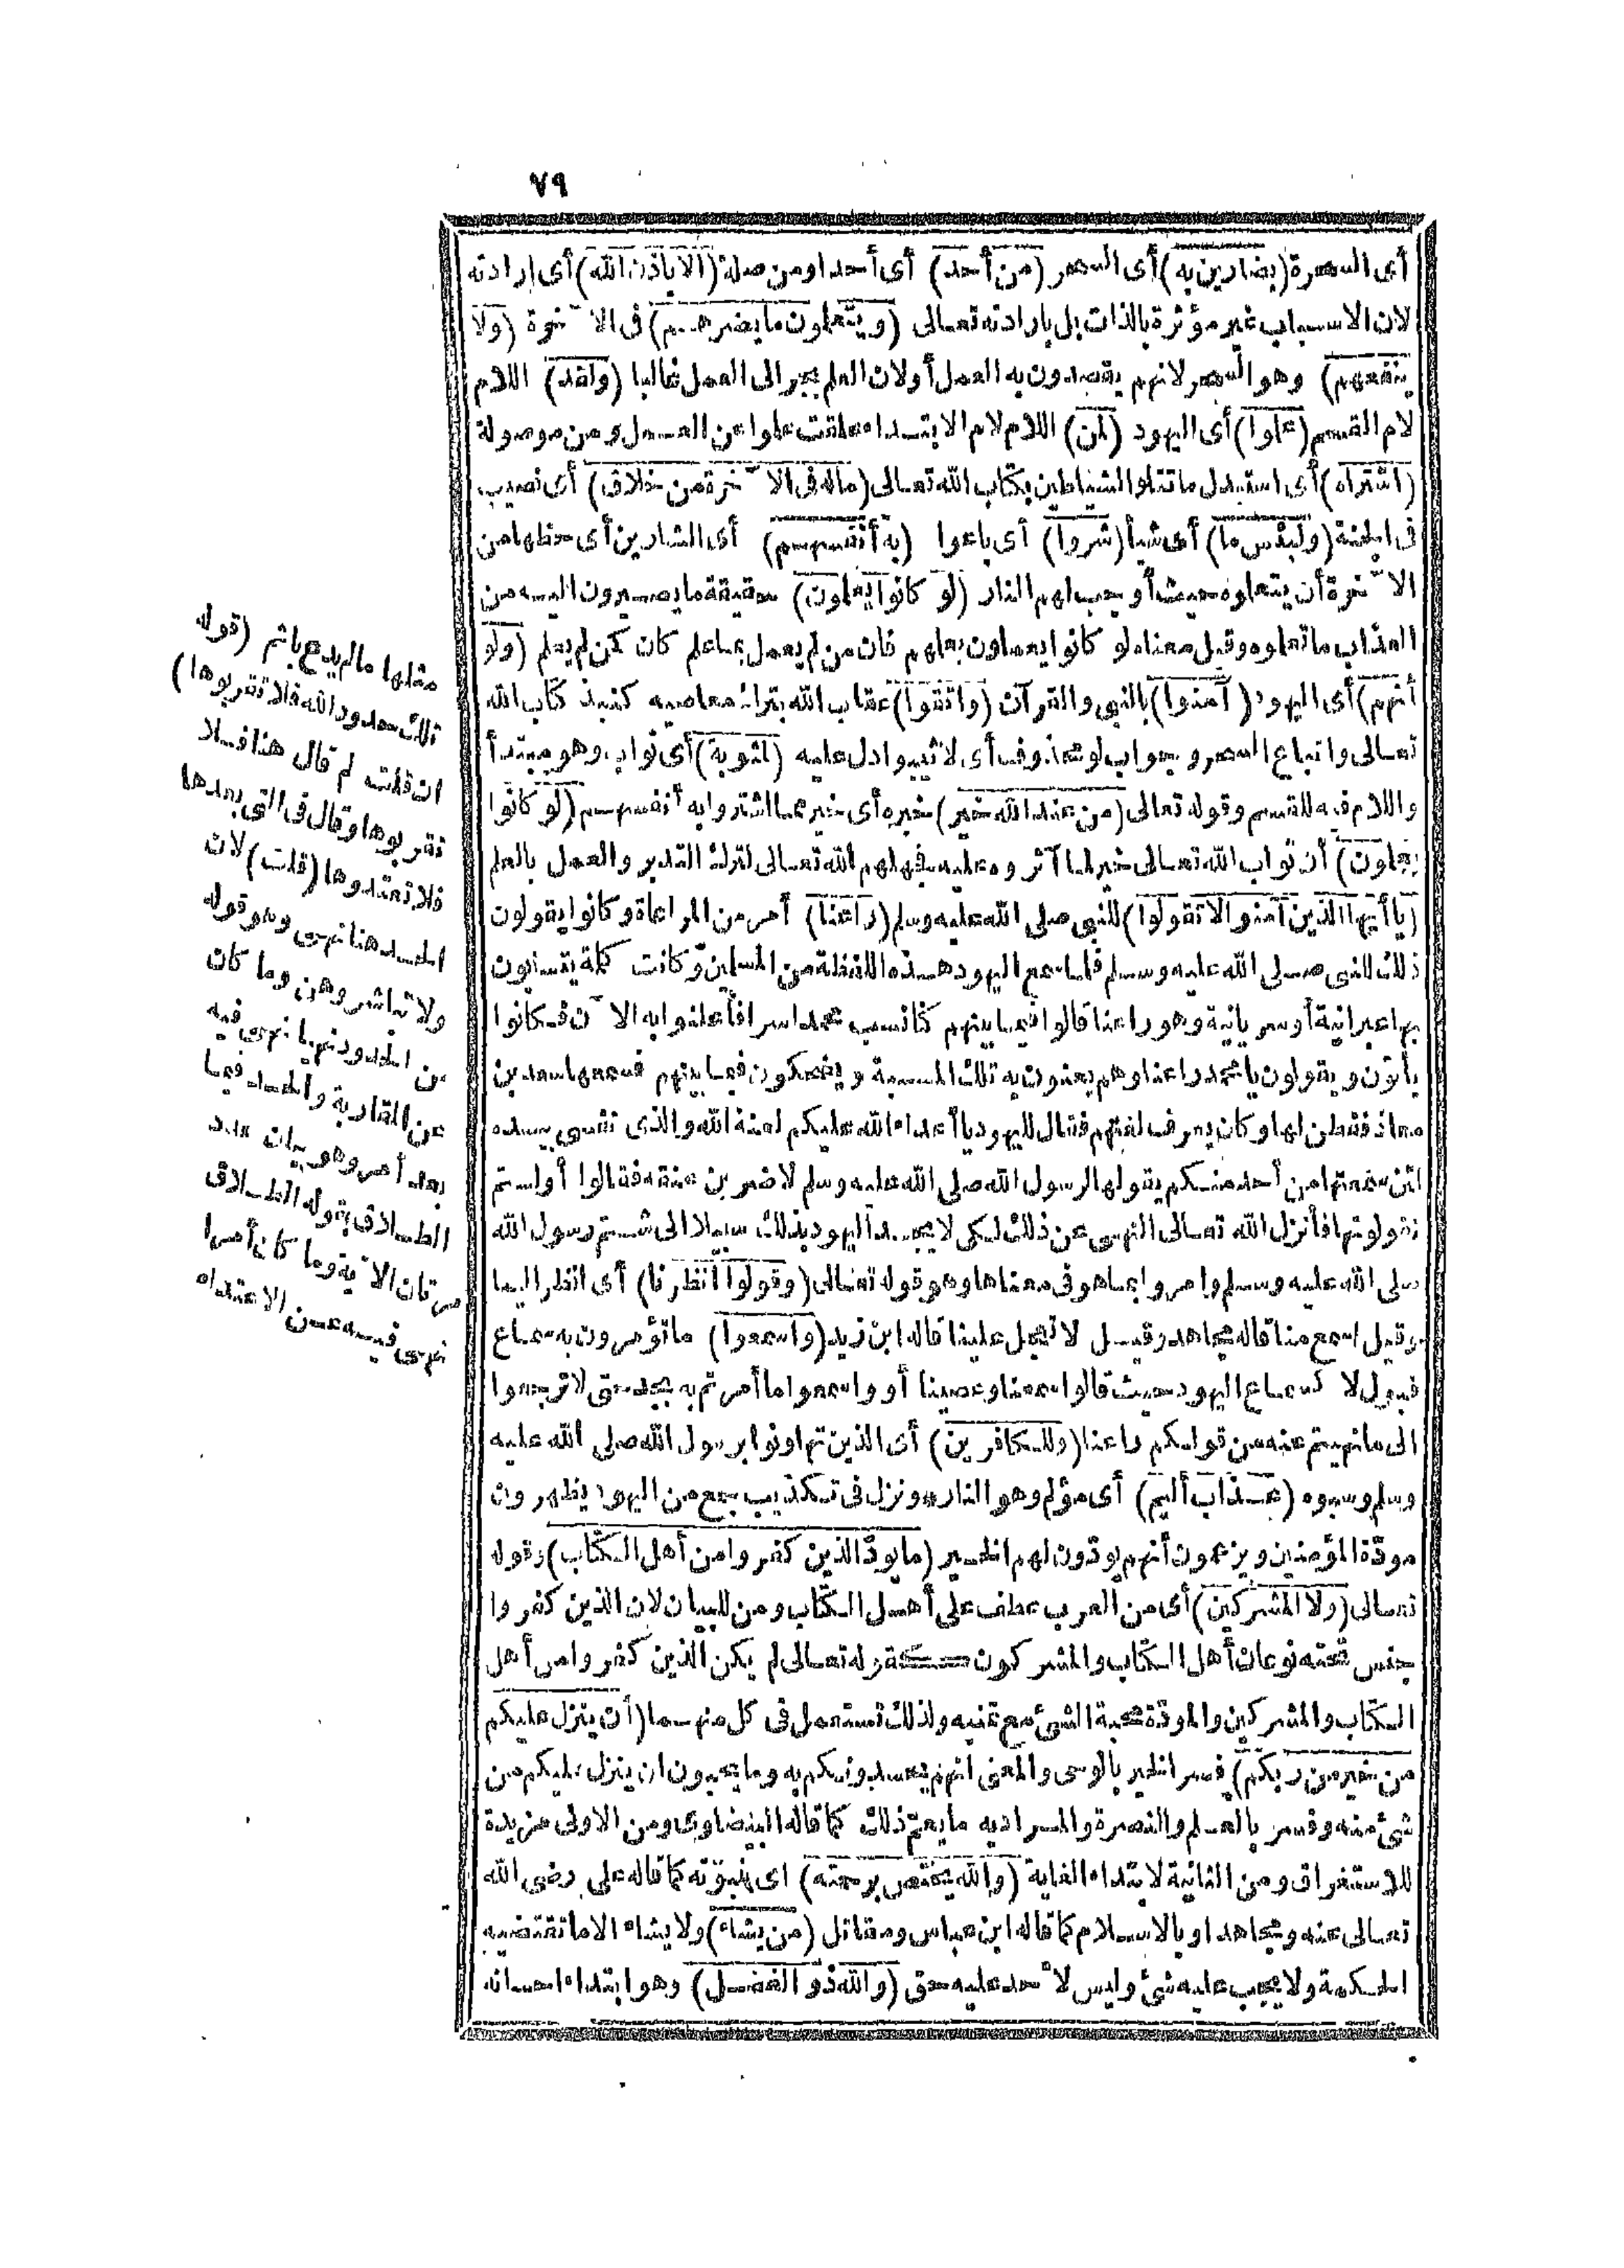 ٧٩
أى السحرة (بضارين به) أى السحر (من أحد) أى أحدا ومن صلة (الا باذن الله) أى ارادته
لان الاسباب غير مؤثرة بالذات بل بارادته تعالى (ويتعلمون ما يضرهم) فى الآخرة (ولا
ينفعهم) وهو السحر لانهم يقصدون به العمل أولان العلم يجر الى العمل غالبا (ولقد) اللام
لام القسم (علموا) أى اليهود (لمن) اللام لام الابتداء علقت علموا عن العمل ومن موصولة
(اشتراه) أى استبدل ما تتلو الشياطين بكتاب الله تعالى (ماله فى الآخرة من خلاق) أى نصيب
فى الجنة (ولبئس ما) أى شيأ (شروا) أى باعوا (به أنفسهم) أى الشارين أى حظها من
الآخرة أن يتعلموه حيث أوجب لهم النار (لو كانوا يعلمون) حقيقة ما يصيرون اليه من
العذاب ما تعلموه وقيل معناه لو كانوا يعملون بعلمهم فان من لم يعمل بما علم كان كمن لم يعلم (ولو
أنهم) أى اليهود (آمنوا) بالنبى والقرآن (واتقوا) عقاب الله بترك معاصيه كنبذ كتاب الله
تعالى واتباع السحر وجواب لو محذوف أى لاثيبوا دل عليه (لمثوبة) أى ثواب وهو مبتدأ
واللام فيه للقسم وقوله تعالى (من عند الله خير) خبره أى خير مما اشتروا به أنفسهم (لو كانوا
يعلمون) أن ثواب الله تعالى خير لما آثروه عليه فجهلهم الله تعالى لترك التدبر والعمل بالعلم
(يا أيها الذين آمنوا لا تقولوا) للنبى صلى الله عليه وسلم (راعنا) أمر من المراعاة وكانوا يقولون
ذلك للنبى صلى الله عليه وسلم فلما سمع اليهود هذه اللفظة من المسلمين وكانت كلمة يتسابون
بها عبرانية أو سريانية وهو راعنا قالوا فيما بينهم كنا نسب محمدا سرا فأعلنوا به الآن فكانوا
يأتون ويقولون يا محمد راعنا وهم يعنون به تلك المسبة ويضحكون فيما بينهم فسمعها سعد بن
معاذ ففطن لها وكان يعرف لغتهم فقال لليهود يا أعداء الله عليكم لعنة الله والذى نفسى بيده
لئن سمعتها من أحد منكم يقولها لرسول الله صلى الله عليه وسلم لاضربن عنقه فقالوا أولستم
تقولونها فأنزل الله تعالى النهى عن ذلك لكى لا يجد اليهود بذلك سبيلا الى شتم رسول الله
صلى الله عليه وسلم وامروا بما هو فى معناها وهو قوله تعالى (وقولوا انظرنا) أى انظر الينا
وقيل اسمع منا قاله مجاهد وقيل لا تعجل علينا قاله ابن زيد (واسمعوا) ما تؤمرون به سماع
قبول لا كسماع اليهود حيث قالوا سمعنا وعصينا أو واسمعوا ما أمرتم به بجد حتى لا ترجعوا
الى ما نهيتم عنه من قولكم راعنا (وللكافرين) أى الذين تهاونوا برسول الله صلى الله عليه
وسلم وسبوه (عذاب أليم) أى مؤلم وهو النار* ونزل فى تكذيب جمع من اليهود يظهرون
مودة المؤمنين ويزعمون أنهم يودون لهم الخير (ما يود الذين كفروا من أهل الكتاب) وقوله
تعالى (ولا المشركين) أى من العرب عطف على أهل الكتاب ومن للبيان لان الذين كفروا
جنس تحته نوعان أهل الكتاب والمشركون كقوله تعالى لم يكن الذين كفروا من أهل
الكتاب والمشركين والمودة محبة الشئ مع تمنيه ولذلك تستعمل فى كل منهما (أن ينزل عليكم
من خير من ربكم) فسر الخير بالوحى والمعنى انهم يحسدونكم به وما يحبون ان ينزل عليكم من
شئ منه وفسر بالعلم والنصرة والمراد به ما يعم ذلك كما قاله البيضاوى ومن الاولى مزيدة
للاستغراق ومن الثانية لابتداء الغاية (والله يختص برحمته) اى بنبوته كما قاله على رضى الله
تعالى عنه ومجاهد او بالاسلام كما قاله ابن عباس ومقاتل (من يشاء) ولا يشاء الا ما تقتضيه
الحكمة ولا يجب عليه شئ وليس لاحد عليه حق (والله ذو الفضل) وهو ابتداء احسانه
مثلها مالم يدع باثم (قوله
تلك حدود الله فلا تقربوها)
ان قلت لم قال هنا فلا
تقربوها وقال فى التى بعدها
فلا تعتدوها (قلت) لان
الحد هنا نهى وهو قوله
ولا تباشروهن وما كان
من الحدود نهيا نهى فيه
عن المقاربة والحد فيما
بعد أمر وهو بيان عدد
الطلاق بقوله الطلاق
مرتان الآية وما كان أمرا
نهى فيه عن الاعتداء